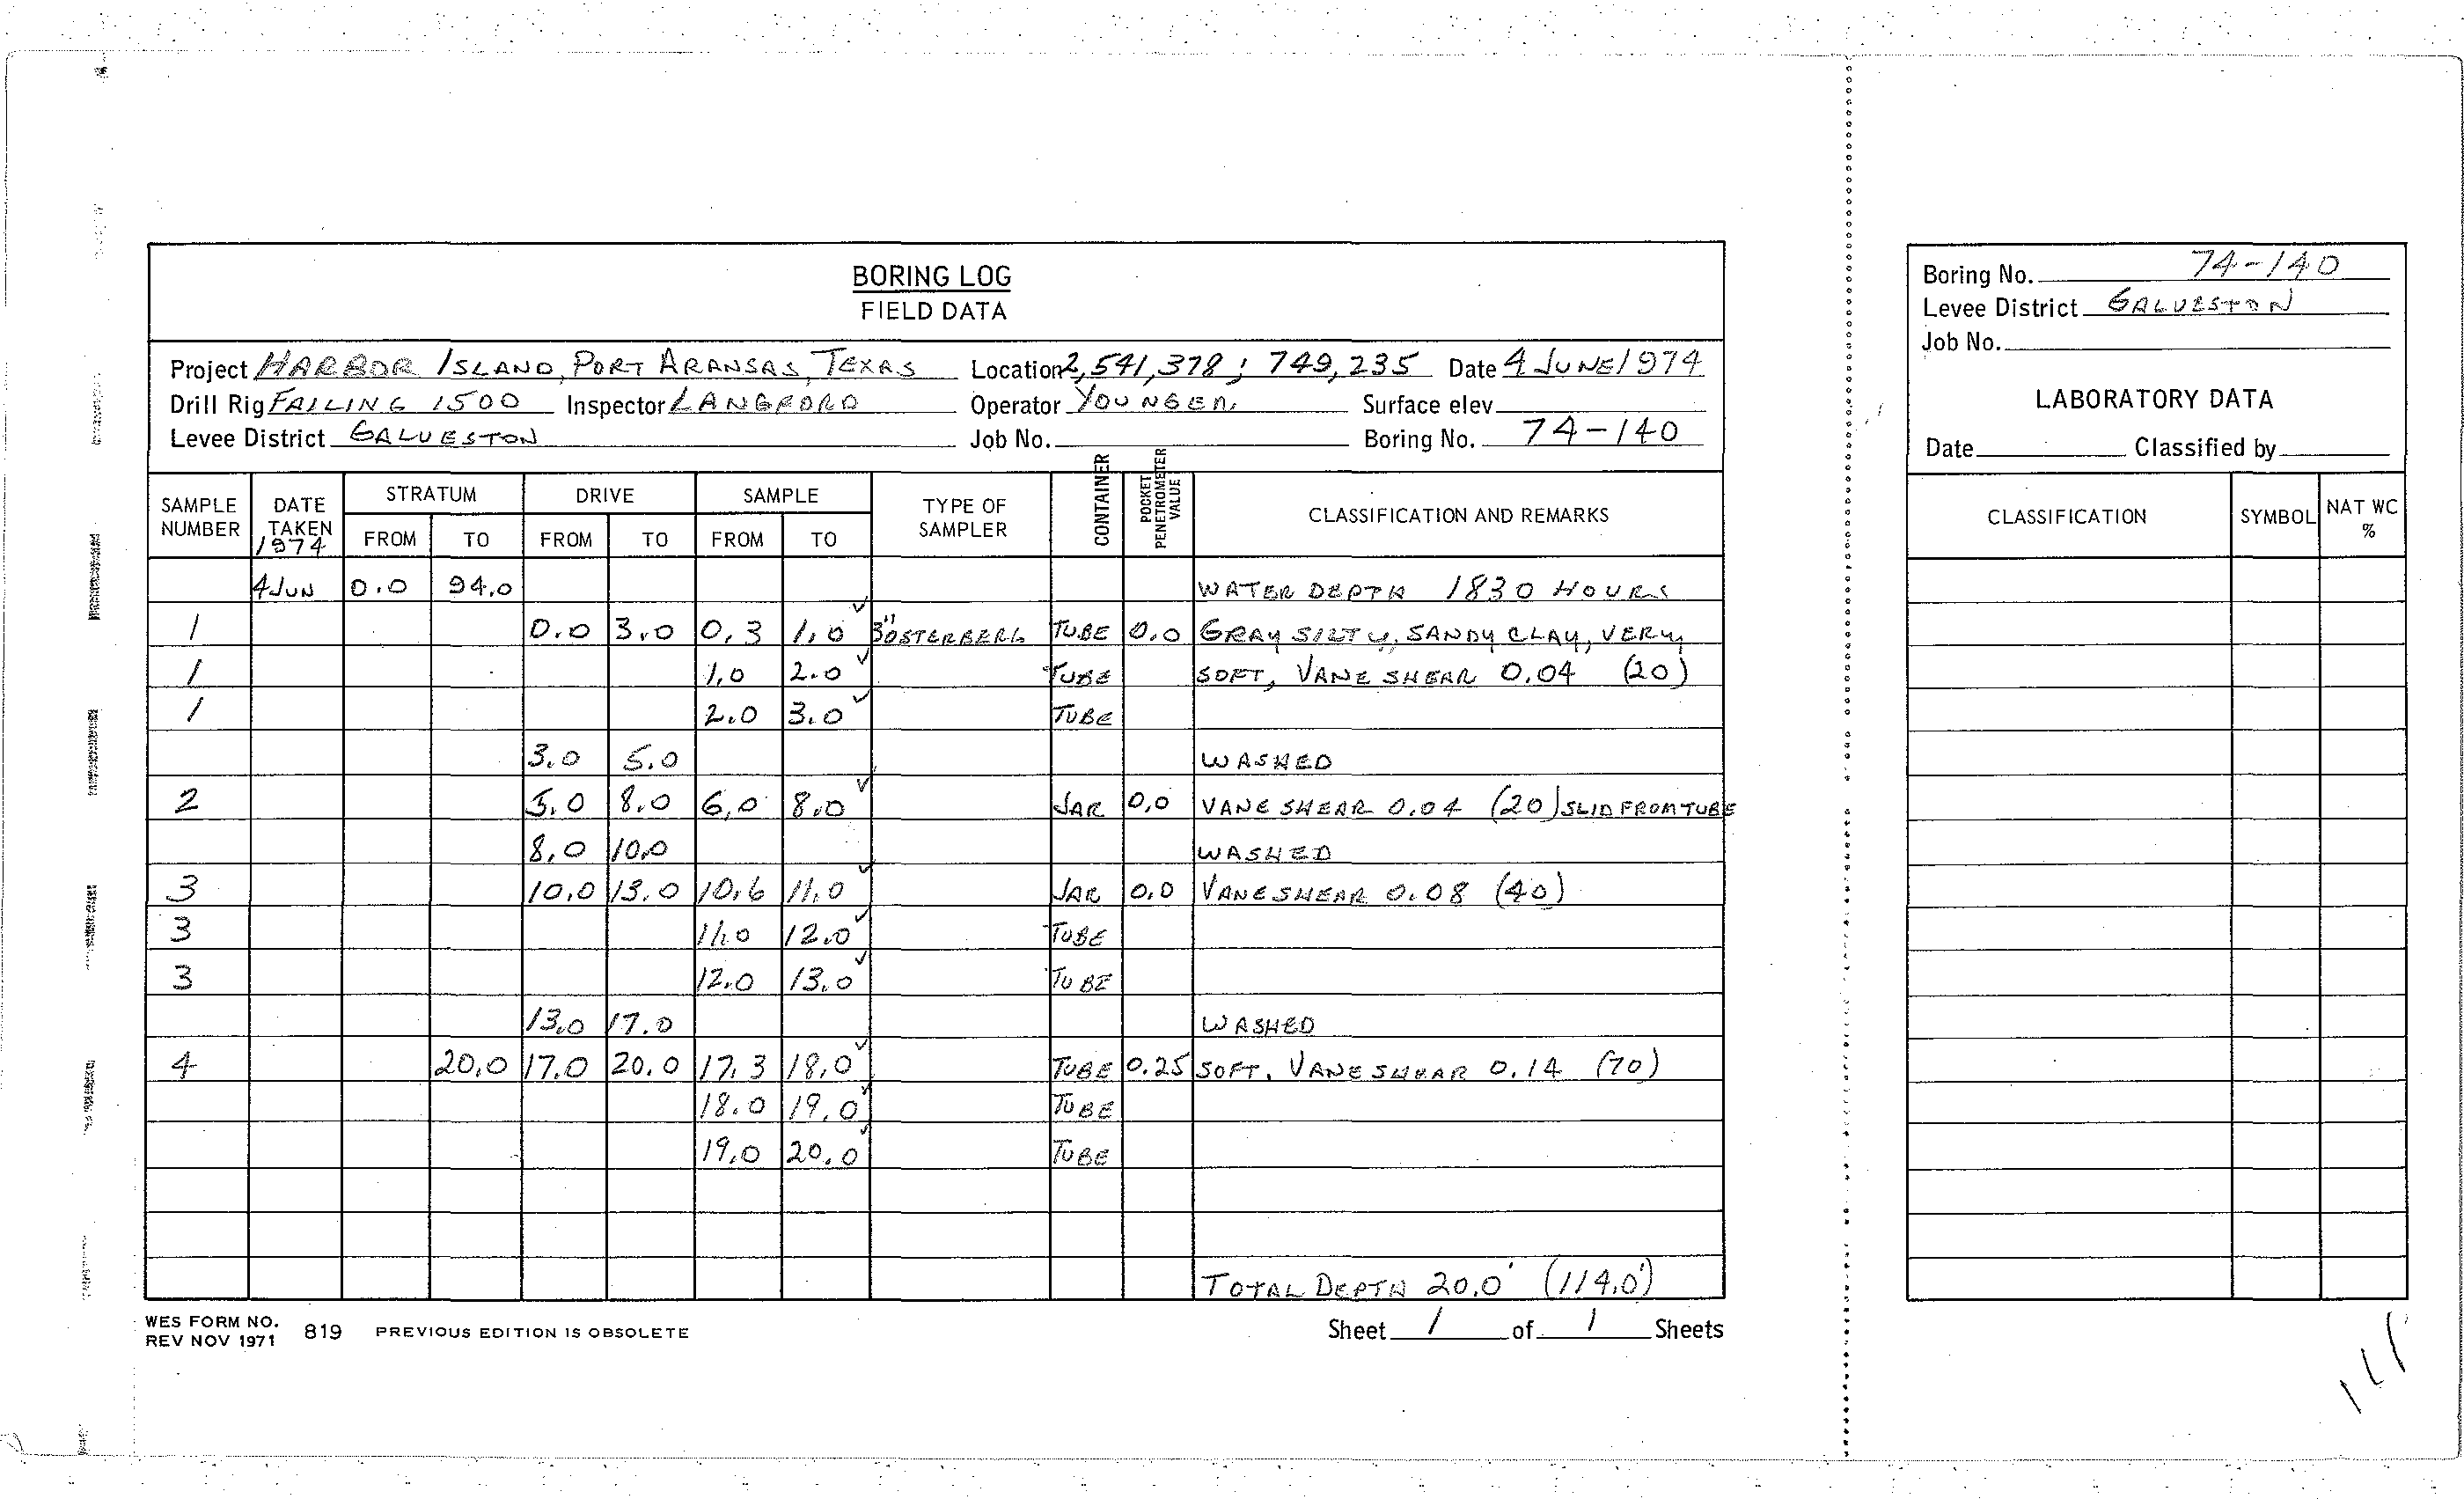 BORING LOG
FIELD DATA
Project HARBOR ISLAND, PORT ARANSAS, TEXAS Location 2,541,378; 749,235 Date 4 JUNE 1974
Drill Rig FAILING 1500 Inspector LANGFORD Operator YOUNGER Surface elev.
Levee District GALVESTON Job No. Boring No. 74-140
SAMPLE NUMBER DATE TAKEN 1974 STRATUM FROM TO DRIVE FROM TO SAMPLE FROM TO TYPE OF SAMPLER CONTAINER POCKET PENETROMETER VALUE CLASSIFICATION AND REMARKS
4 JUN 0.0 94.0 WATER DEPTH 1830 HOURS
1 0.0 3.0 0.3 1.0 ✓ 3" OSTERBERG TUBE 0.0 GRAY SILTY, SANDY CLAY, VERY
1 1.0 2.0 ✓ TUBE SOFT, VANE SHEAR 0.04 (20)
1 2.0 3.0 ✓ TUBE
3.0 5.0 WASHED
2 5.0 8.0 6.0 8.0 ✓ JAR 0.0 VANE SHEAR 0.04 (20) SLID FROM TUBE
8.0 10.0 WASHED
3 10.0 13.0 10.6 11.0 ✓ JAR 0.0 VANE SHEAR 0.08 (40)
3 11.0 12.0 ✓ TUBE
3 12.0 13.0 ✓ TUBE
13.0 17.0 WASHED
4 20.0 17.0 20.0 17.3 18.0 ✓ TUBE 0.25 SOFT, VANE SHEAR 0.14 (70)
18.0 19.0 ✓ TUBE
19.0 20.0 ✓ TUBE
TOTAL DEPTH 20.0' (114.0')
WES FORM NO. 819 PREVIOUS EDITION IS OBSOLETE
REV NOV 1971
Sheet 1 of 1 Sheets
Boring No. 74-140
Levee District GALVESTON
Job No.
LABORATORY DATA
Date Classified by
CLASSIFICATION SYMBOL NAT WC %